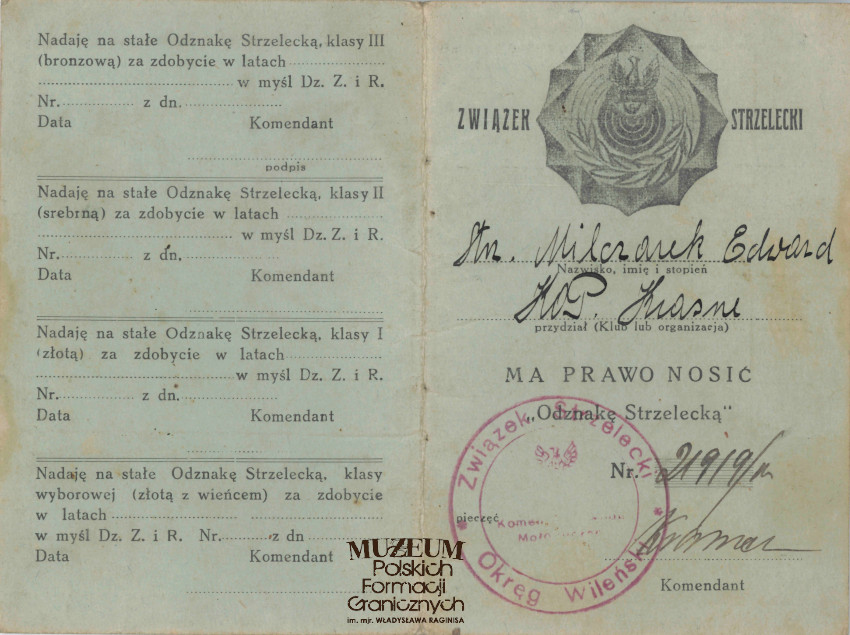 Nadaję na stałe Odznakę Strzelecką, klasy III
(bronzową) za zdobycie w latach
w myśl Dz. Z. i R.
Nr. z dn.
Data Komendant
podpis
Nadaję na stałe Odznakę Strzelecką, klasy II
(srebrną) za zdobycie w latach
w myśl Dz. Z. i R.
Nr. z dn.
Data Komendant
Nadaję na stałe Odznakę Strzelecką, klasy I
(złotą) za zdobycie w latach
w myśl Dz. Z. i R.
Nr. z dn.
Data Komendant
Nadaję na stałe Odznakę Strzelecką, klasy
wyborowej (złotą z wieńcem) za zdobycie
w latach
w myśl Dz. Z. i R. Nr. z dn
Data Komendant
MUZEUM
Polskich
Formacji
Granicznych
im. mjr. WŁADYSŁAWA RAGINISA
ZWIĄZEK STRZELECKI
Str. Milczarek Edward
Nazwisko, imię i stopień
KOP. Krasne
przydział (Klub lub organizacja)
MA PRAWO NOSIĆ
„Odznakę Strzelecką"
Nr. 21919/
pieczęć
Związek Strzelecki
* Okręg Wileński *
Komendant